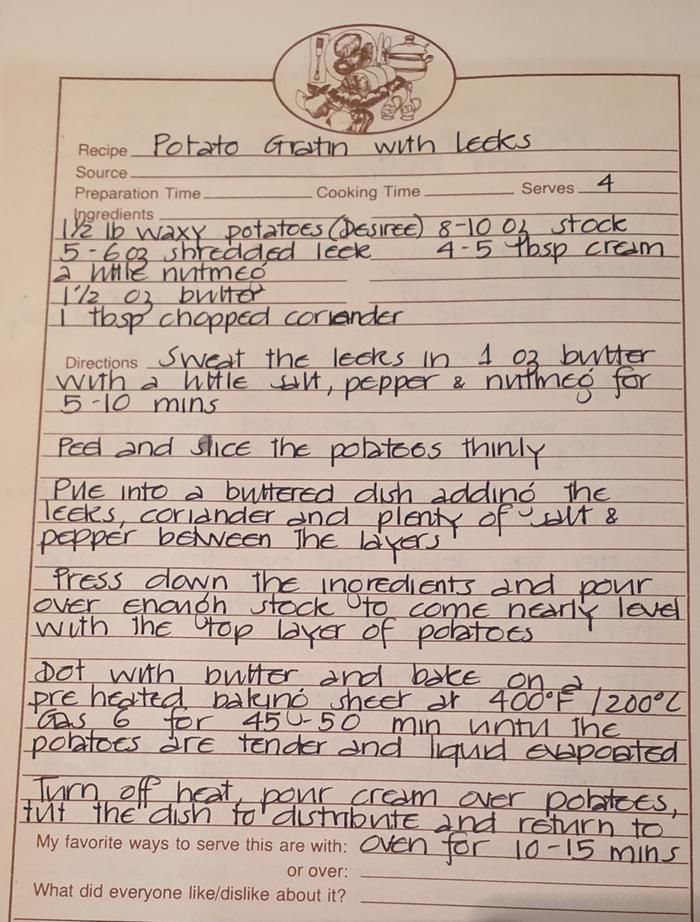 Recipe Potato Gratin with Leeks
Source
Preparation Time Cooking Time Serves 4
Ingredients
1 1/2 lb waxy potatoes (Desiree) 8-10 oz stock
5-6 oz shredded leek 4-5 tbsp cream
a little nutmeg
1 1/2 oz butter
1 tbsp chopped coriander
Directions Sweat the leeks in 1 oz butter
with a little salt, pepper & nutmeg for
5-10 mins
Peel and slice the potatoes thinly
Pile into a buttered dish adding the
leeks, coriander and plenty of salt &
pepper between the layers
Press down the ingredients and pour
over enough stock to come nearly level
with the top layer of potatoes
Dot with butter and bake on a
preheated baking sheet at 400°F/200°C
Gas 6 for 45-50 min until the
potatoes are tender and liquid evaporated
Turn off heat, pour cream over potatoes,
tilt the dish to distribute and return to
My favorite ways to serve this are with: oven for 10-15 mins
or over:
What did everyone like/dislike about it?